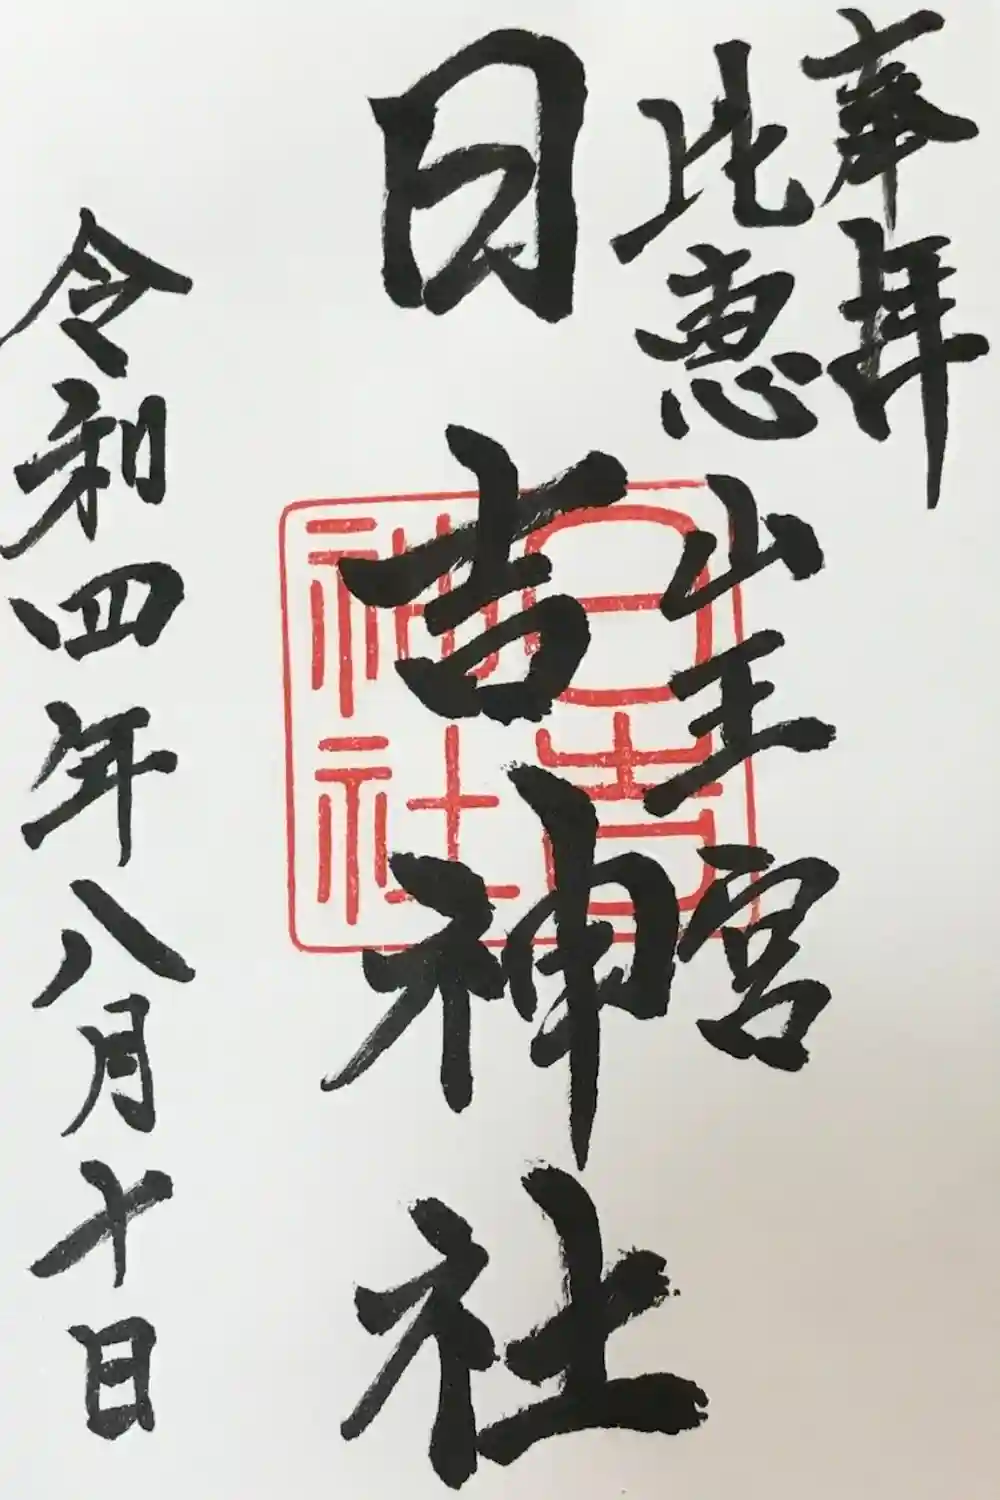 奉拝
比恵 山王宮
日吉神社
日吉神社
令和四年八月十日